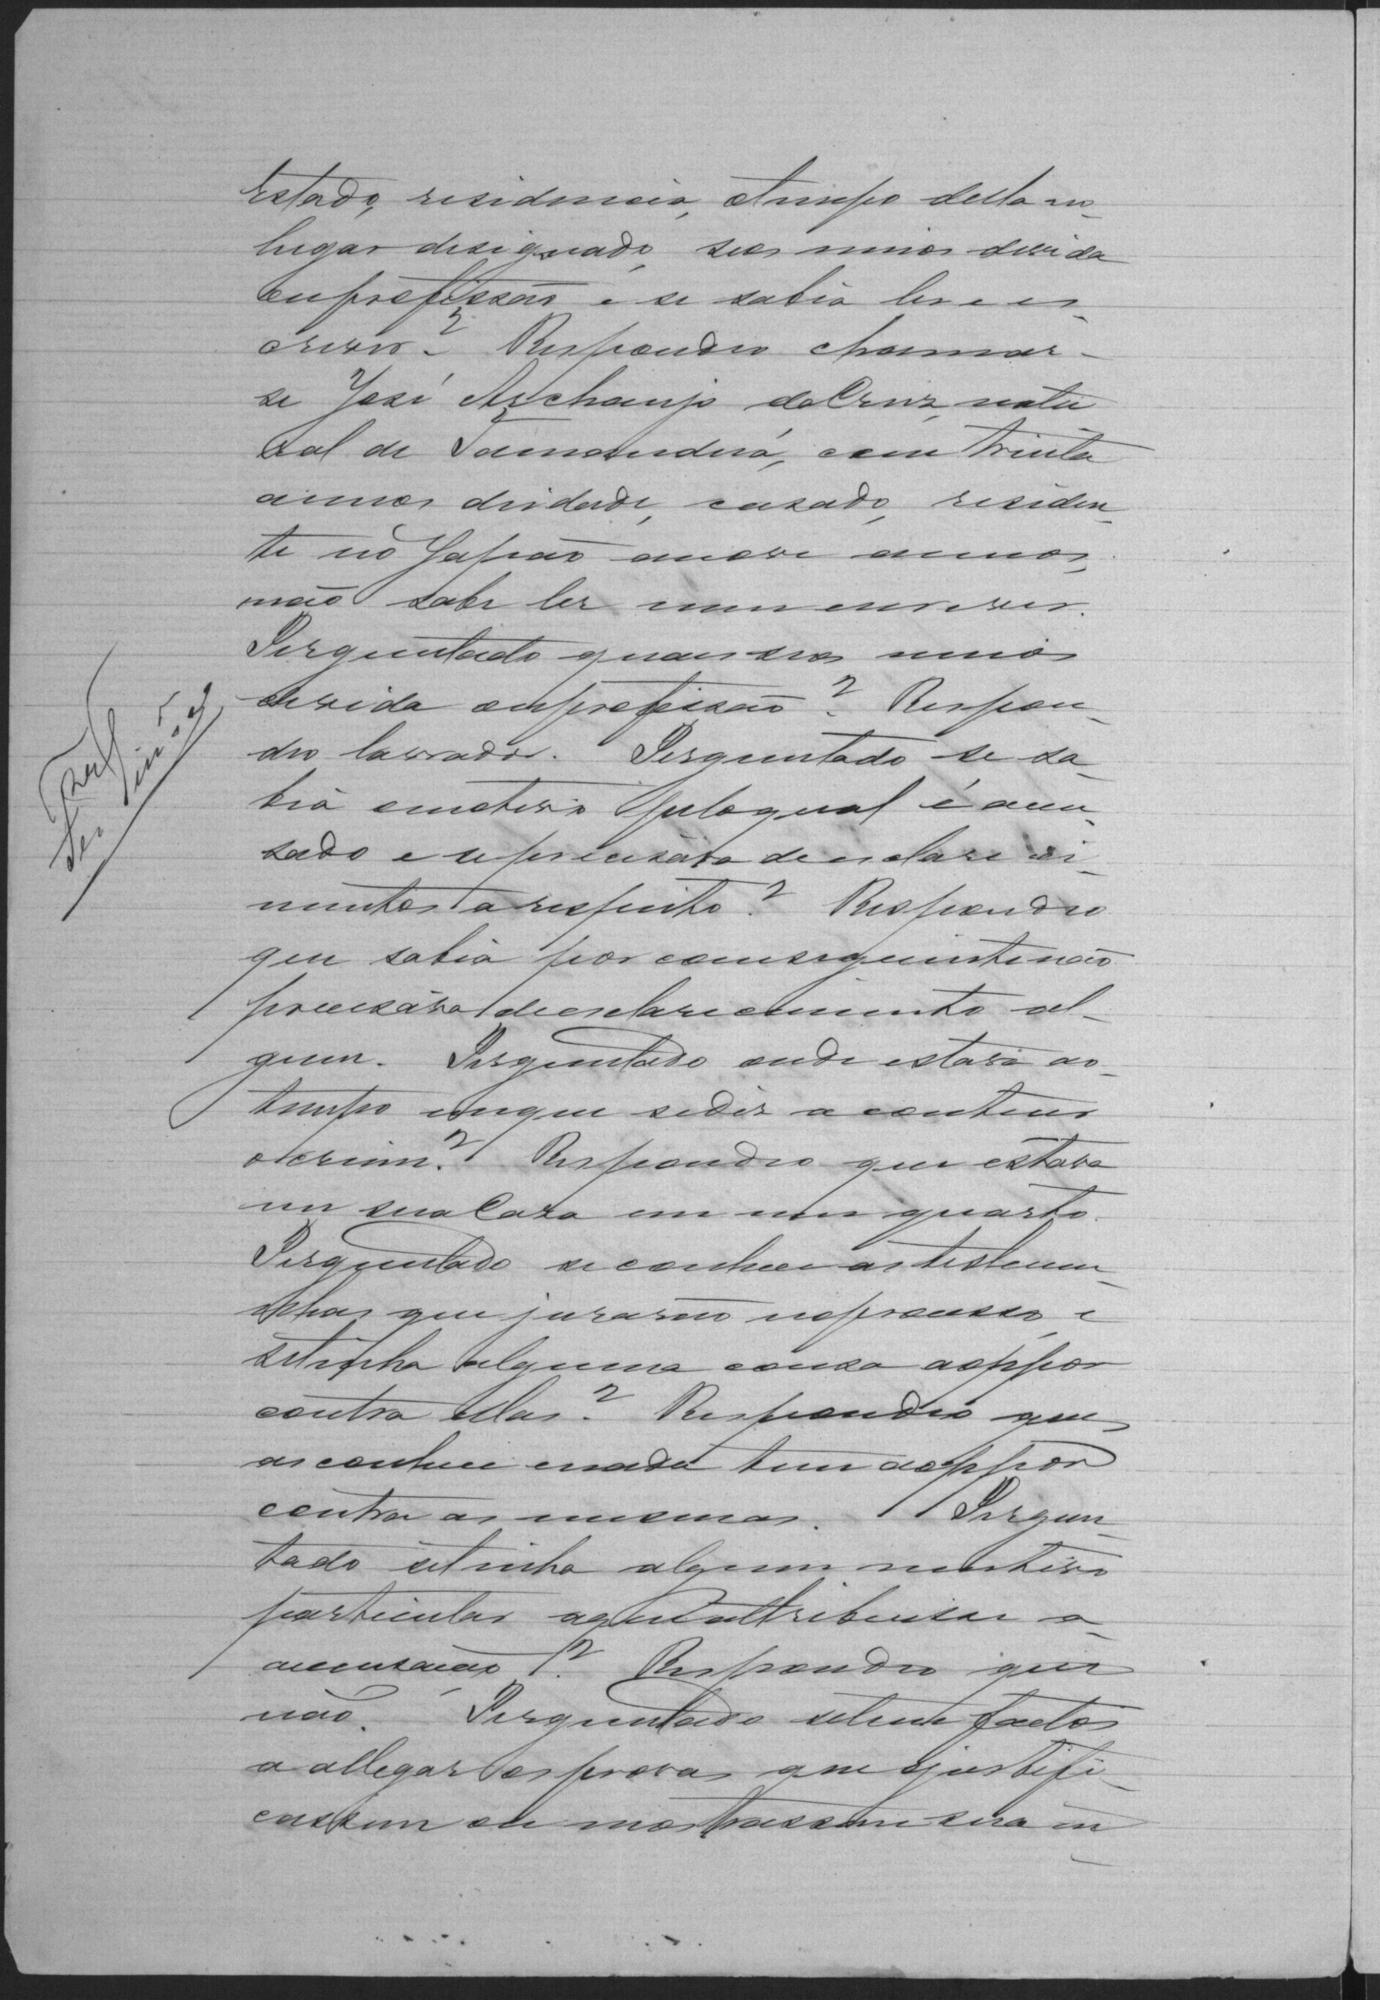 Estado, residencia, e tempo della no
lugar designado, seos meios de vida
ou profissão e se sabia ler e es-
crever? Respondeo chamar-
se José Archanjo da Cruz, natu
ral de Tamandua, com trinta
annos de idade, casado, residen-
te no Japão a nove annos,
não sabe ler nem escrever.
Perguntado quaes seos meios
de vida ou profissão? Respon-
deo lavrador. Perguntado se sa-
bia o motivo pelo qual é accu-
sado e se precisava de esclareci-
mentos a respeito? Respondeo
que sabia por conseguinte não
precisava de esclarecimento al-
gum. Perguntado onde estava ao
tempo em que se diz acontecer
o crime? Respondeo que estava
em sua Casa em um quarto.
Perguntado se conhece as testemu-
nhas que jurarão no processo, e
se tinha alguma cousa a oppor
contra ellas? Respondeo que
as conhece e nada tem a oppor
contra as mesmas. Pergun-
tado se tinha algum motivo
particular a que attribuisse a
accusação? Respondeo que
não. Perguntado se tem factos
a allegar ou provas que justifi-
cassem ou mostrassem sua in